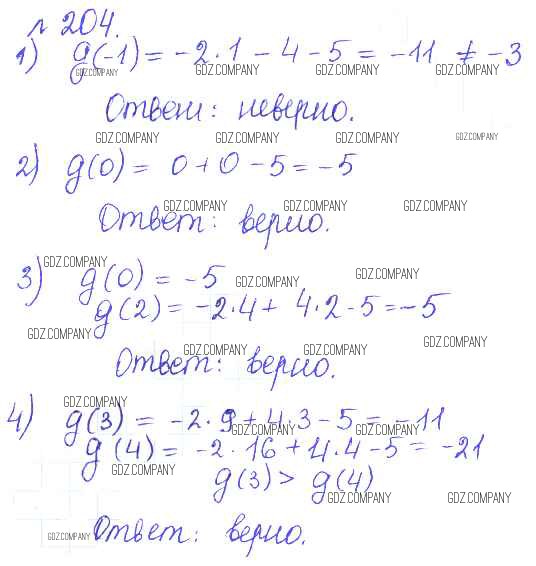 № 204.
1) g(-1) = -2·1 - 4 - 5 = -11 ≠ -3
GDZ.COMPANY GDZ.COMPANY GDZ.COMPANY GDZ.COMPANY
Ответ: неверно.
GDZ.COMPANY GDZ.COMPANY GDZ.COMPANY GDZ.COMPANY
2) g(0) = 0 + 0 - 5 = -5
GDZ.COMPANY GDZ.COMPANY GDZ.COMPANY
Ответ: верно.
GDZ.COMPANY
3) g(0) = -5
GDZ.COMPANY GDZ.COMPANY
g(2) = -2·4 + 4·2 - 5 = -5
GDZ.COMPANY GDZ.COMPANY
GDZ.COMPANY GDZ.COMPANY
Ответ: верно.
GDZ.COMPANY
4) g(3) = -2·9 + 4·3 - 5 = -11
GDZ.COMPANY GDZ.COMPANY
g(4) = -2·16 + 4·4 - 5 = -21
GDZ.COMPANY
g(3) > g(4)
GDZ.COMPANY GDZ.COMPANY
Ответ: верно.
GDZ.COMPANY